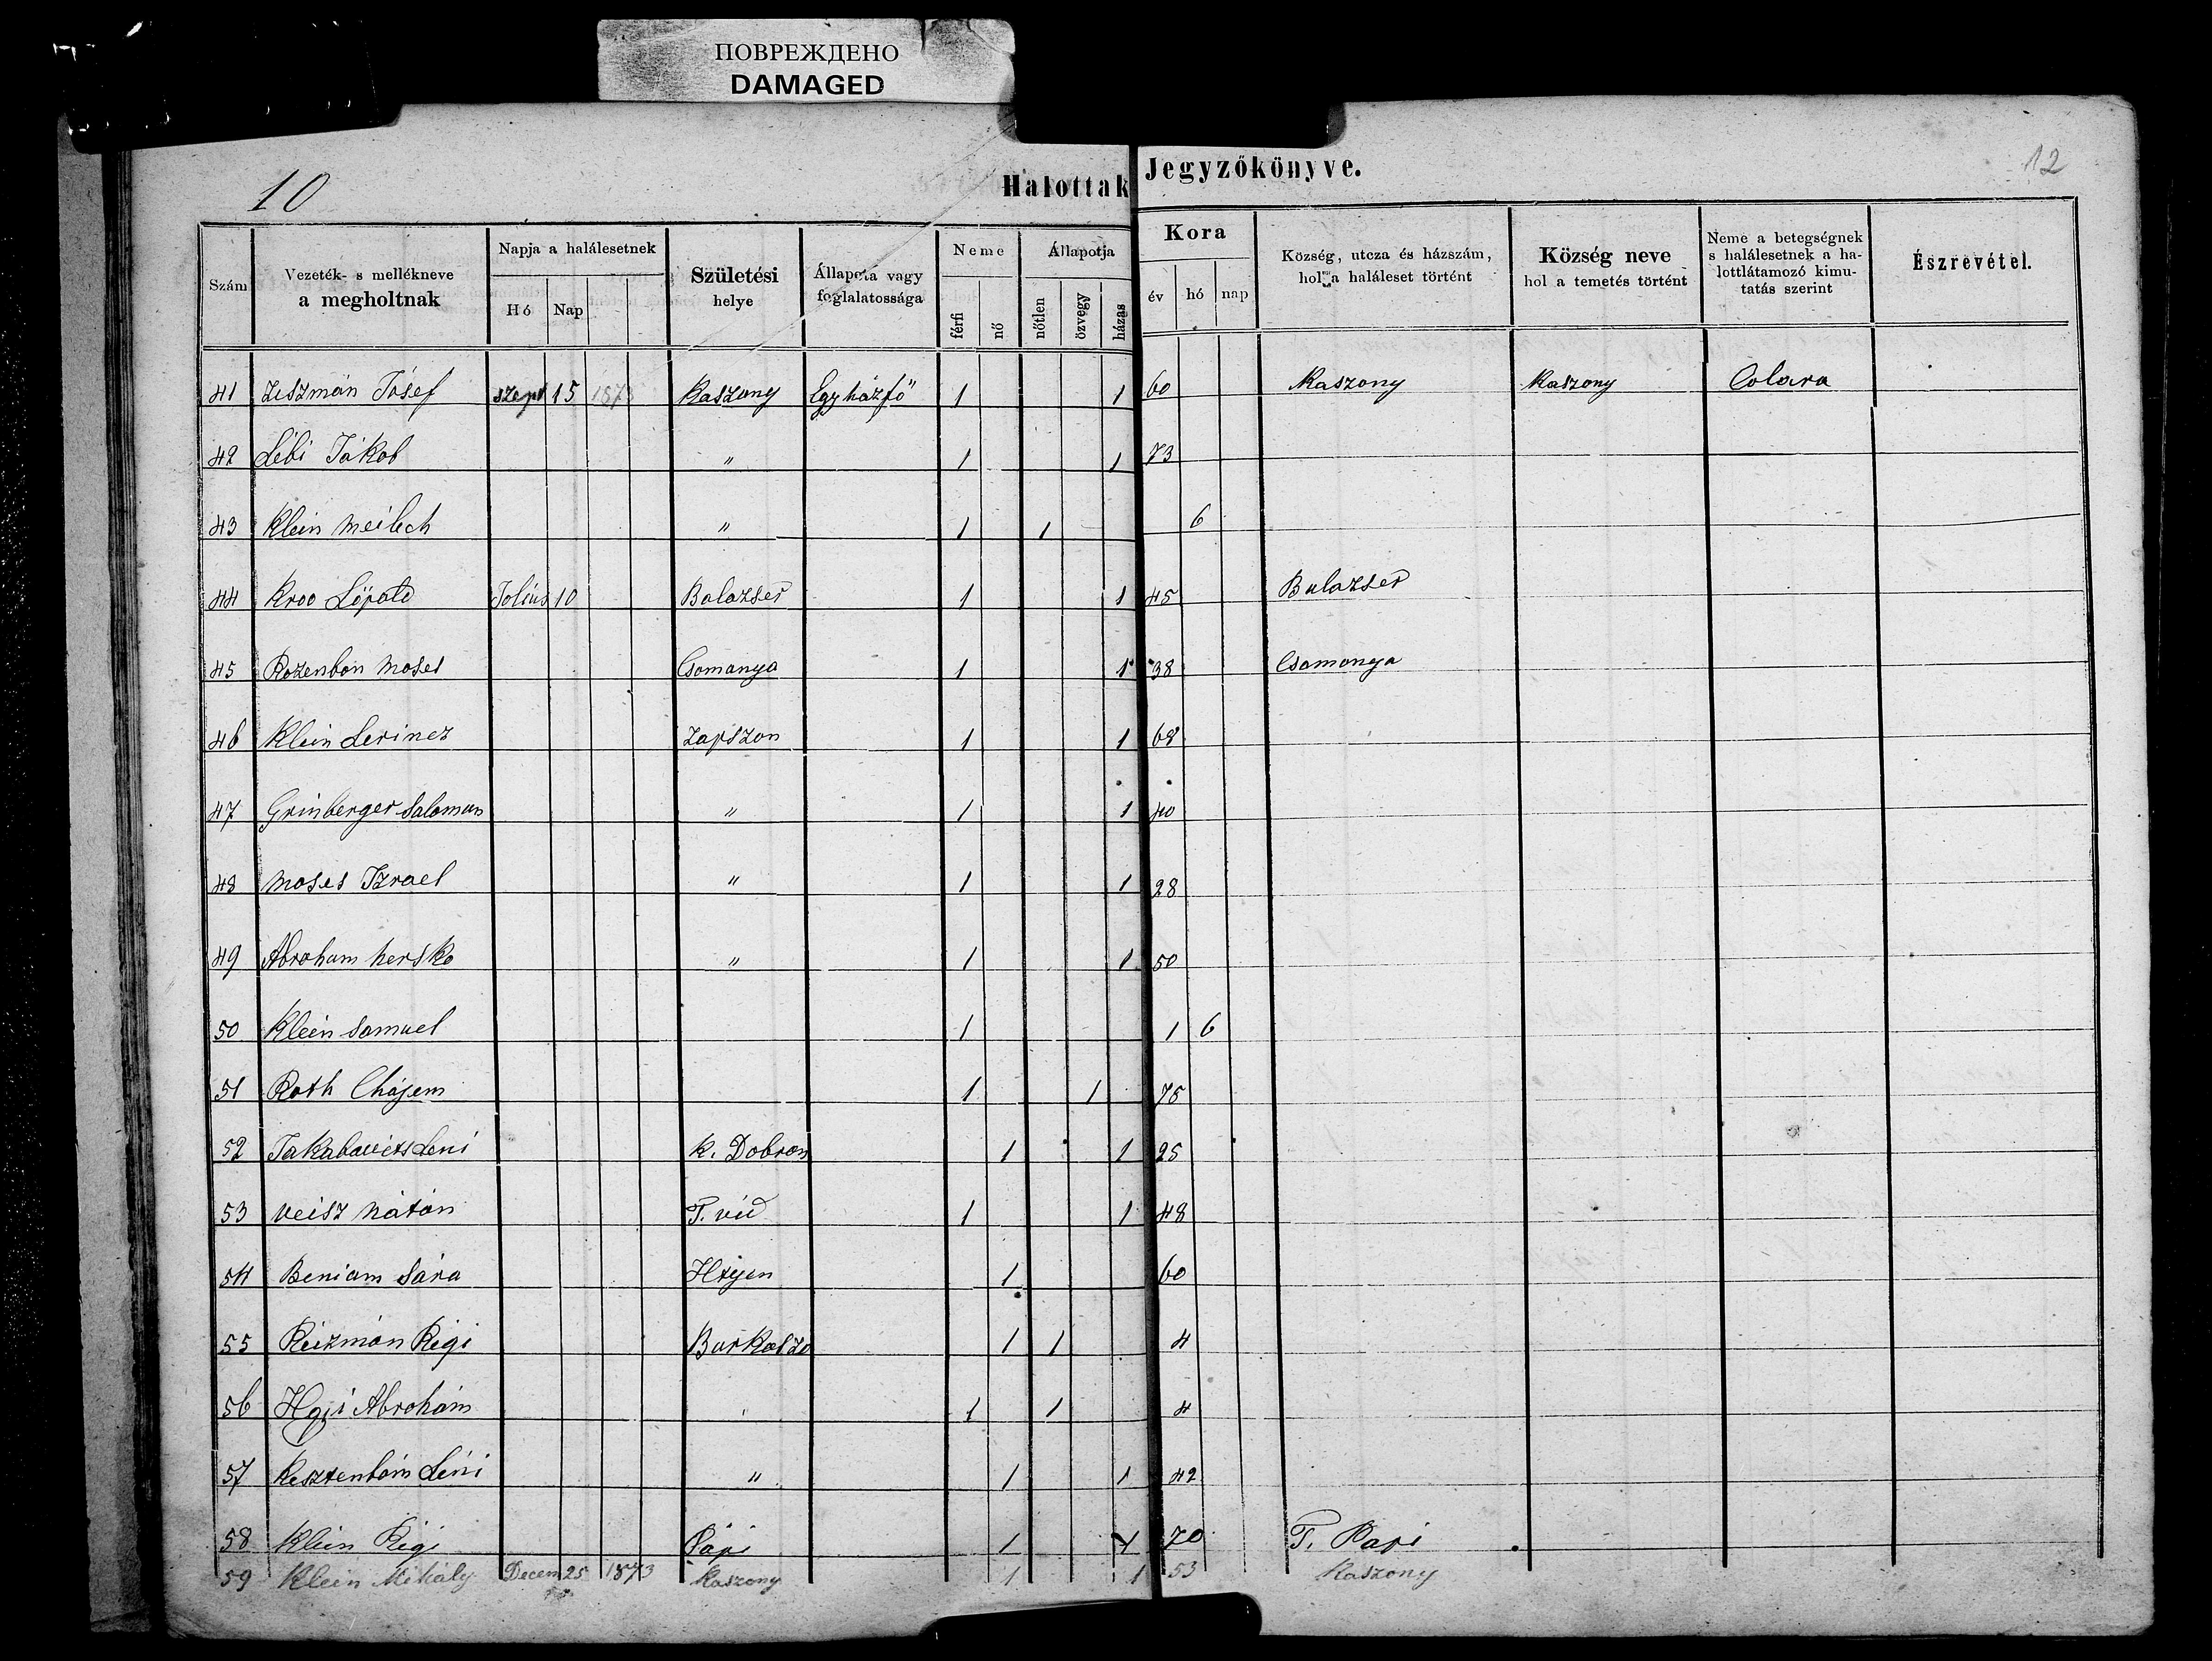 ПОВРЕЖДЕНО
DAMAGED
10
Halottak Jegyzőkönyve.
12
Szám
Vezeték- s mellékneve a megholtnak
Napja a halálesetnek
Hó Nap
Születési helye
Állapota vagy foglalatossága
Neme
férfi nő
Állapotja
nőtlen özvegy házas
Kora
év hó nap
Község, utcza és házszám, hol a haláleset történt
Község neve hol a temetés történt
Neme a betegségnek s halálesetnek a halottlátamozó kimutatás szerint
Észrevétel.
41 Zeszmán Jósef szept 15 1873 Kaszony Egyházfő 1 1 60 Kaszony Kaszony Colara
42 Lébi Jákob " 1 1 73
43 Klein Meilech " 1 1 6
44 Kroo Lipold Jolius 10 Balazser 1 1 45 Balazser
45 Rozenbon Moses Csomanya 1 1 38 Csomonya
46 Klein Lerincz Zapszon 1 1 68
47 Grinberger Saloman " 1 1 40
48 Moses Izrael " 1 1 28
49 Abraham hersko " 1 1 50
50 Klein Samuel 1 1 6
51 Roth Chájem 1 1 75
52 Jakabovits Leni K. Dobron 1 1 25
53 Veisz Nátán T. vid 1 1 48
54 Beniam Sára Htyen 1 60
55 Reizmán Régi Barkaszo 1 1 4
56 Abrohám 1 1 4
57 Kesztenbóm Léni " 1 1 42
58 Klein Régi Pápi 1 1 70 T. Papi
59 Klein Mihály Decem 25 1873 Kaszony 1 1 53 Kaszony